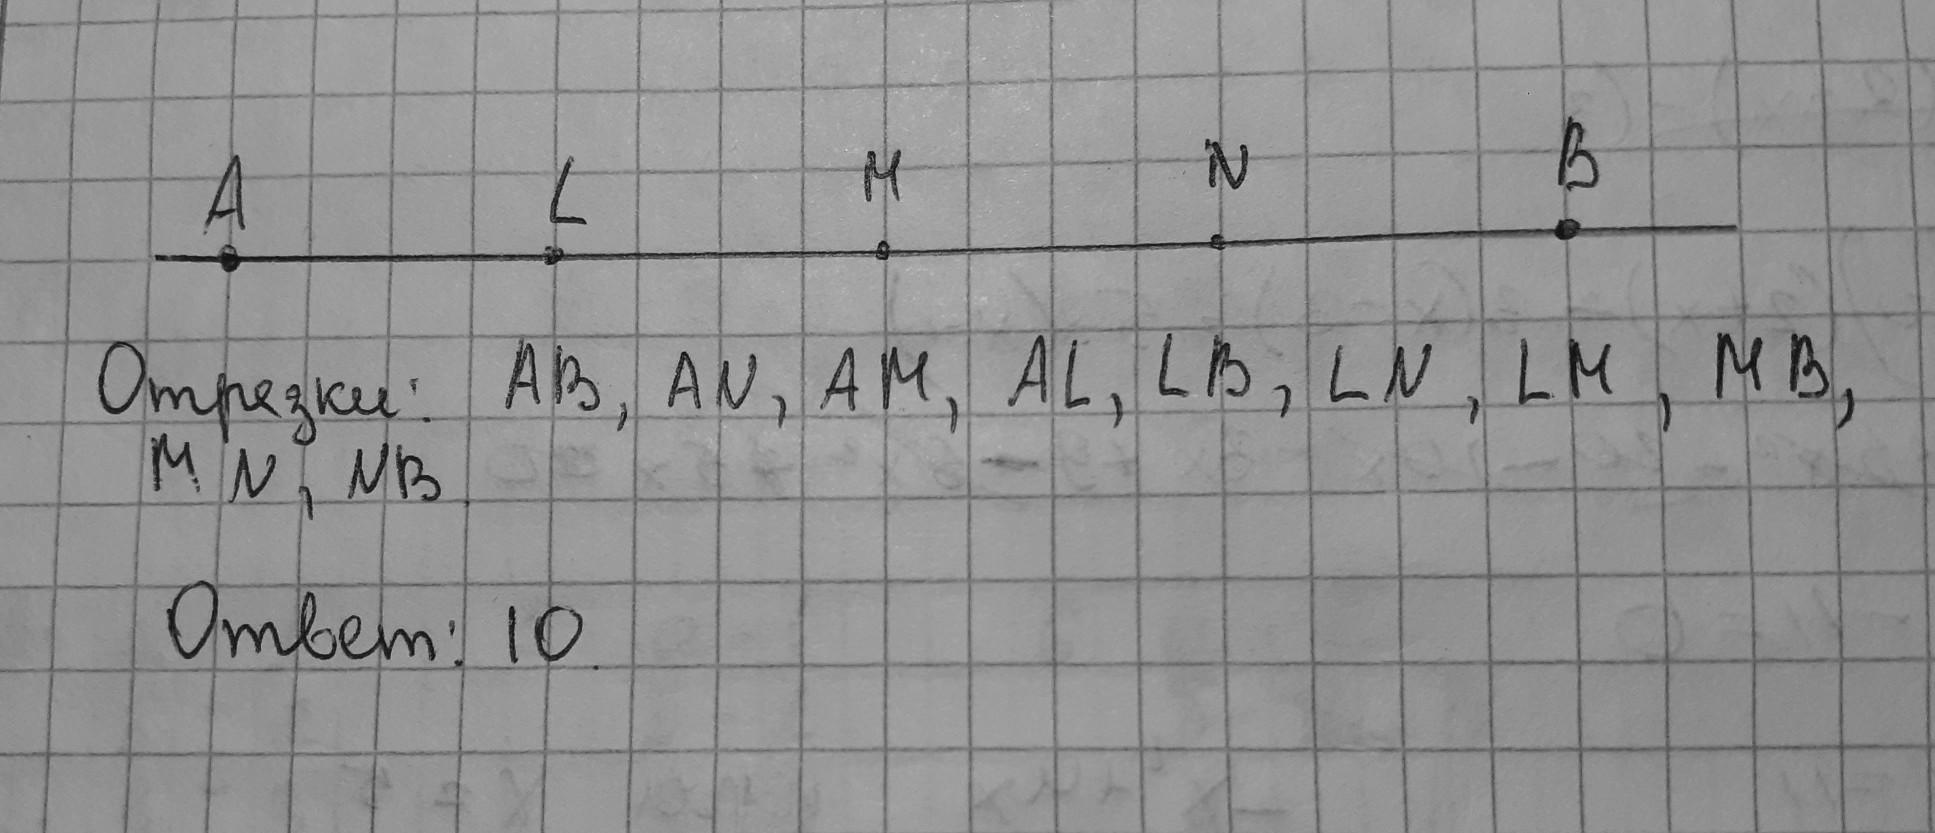 A L M N B
Отрезки: AB, AN, AM, AL, LB, LN, LM, MB,
MN, NB.
Ответ: 10.